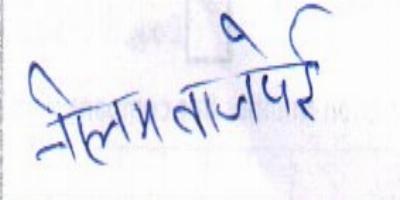 नीलम वाजपेई